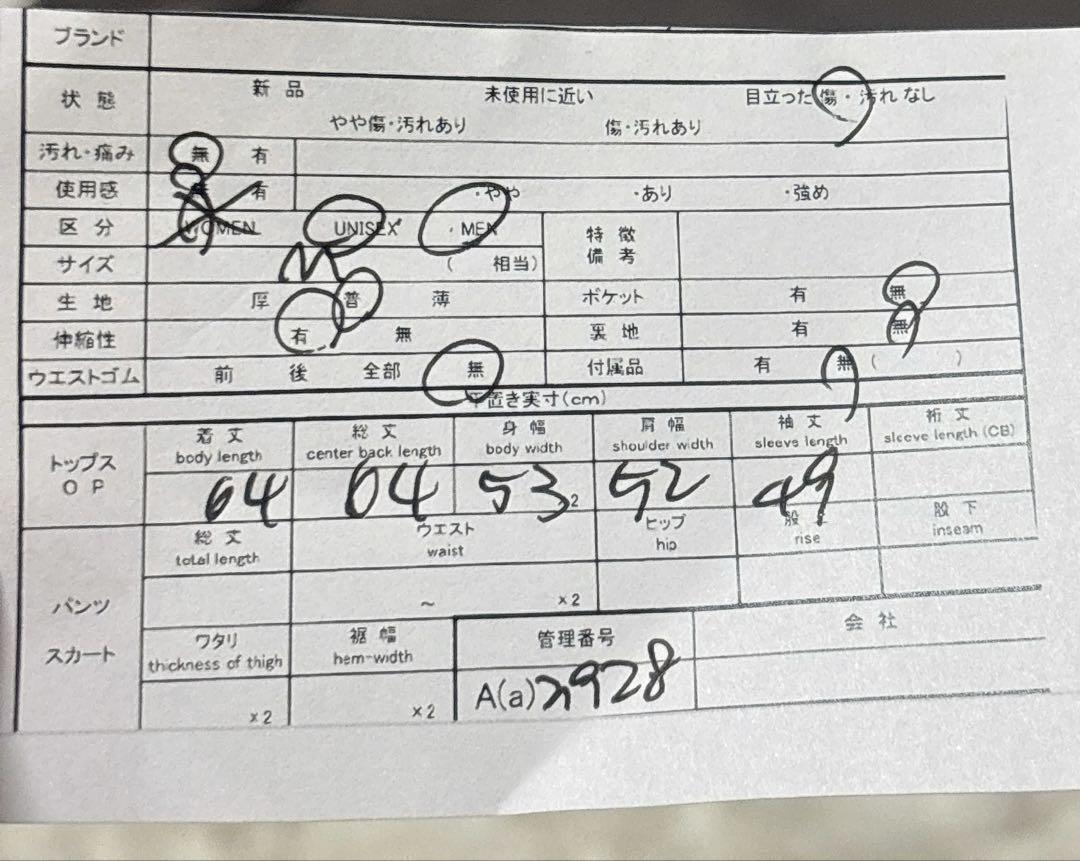 ブランド
状態 新品 未使用に近い 目立った傷・汚れなし
やや傷・汚れあり 傷・汚れあり
汚れ・痛み 無 有
使用感 有 ・やや ・あり ・強め
区分 WOMEN UNISEX ・MEN 特徴
備考
サイズ M ( 相当)
生地 厚 普 薄 ポケット 有 無
伸縮性 有 無 裏地 有 無
ウエストゴム 前 後 全部 無 付属品 有 無 ( )
平置き実寸(cm)
トップス
OP
着丈 総丈 身幅 肩幅 袖丈 裄丈
body length center back length body width shoulder width sleeve length sleeve length (CB)
64 64 53 2 52 49
パンツ
スカート
総丈 ウエスト ヒップ 股上 股下
total length waist hip rise inseam
~ ×2
ワタリ 裾幅 管理番号 会社
thickness of thigh hem-width
×2 ×2 A(a) 928